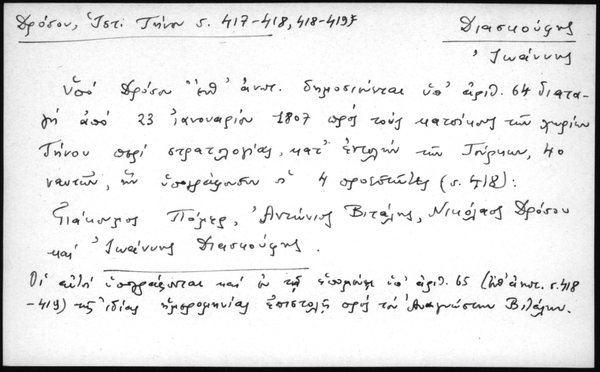 Δρόσου, Ἱστ. Τήνου σ. 417-418, 418-419
Διασκούφης
Ἰωάννης
Ὑπό Δρόσου ἔνθ' ἀνωτ. δημοσιεύεται ὑπ' ἀριθ. 64 διατα-
γή ἀπό 23 Ἰανουαρίου 1807 πρός τούς κατοίκους τῶν χωρίων
Τήνου περί στρατολογίας, κατ' ἐντολήν τῶν Τούρκων, 40
ναυτῶν, ἥν ὑπογράφουσιν οἱ 4 προεστῶτες (σ. 418):
Γιάκουμος Πάμερ, Ἀντώνιος Βιτάλης, Νικόλαος Δρόσου
καί Ἰωάννης Διασκούφης.
Οἱ αὐτοί ὑπογράφονται καί ἐν τῇ ἑπομένῃ ὑπ' ἀριθ. 65 (ἔνθ' ἀνωτ. σ. 418
-419) τῆς ἰδίας ἡμερομηνίας ἐπιστολῇ πρός τόν Ἀναγνώστην Βιτάλην.